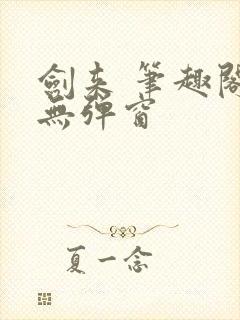 劍来 筆趣閣
無彈窗
夏一念